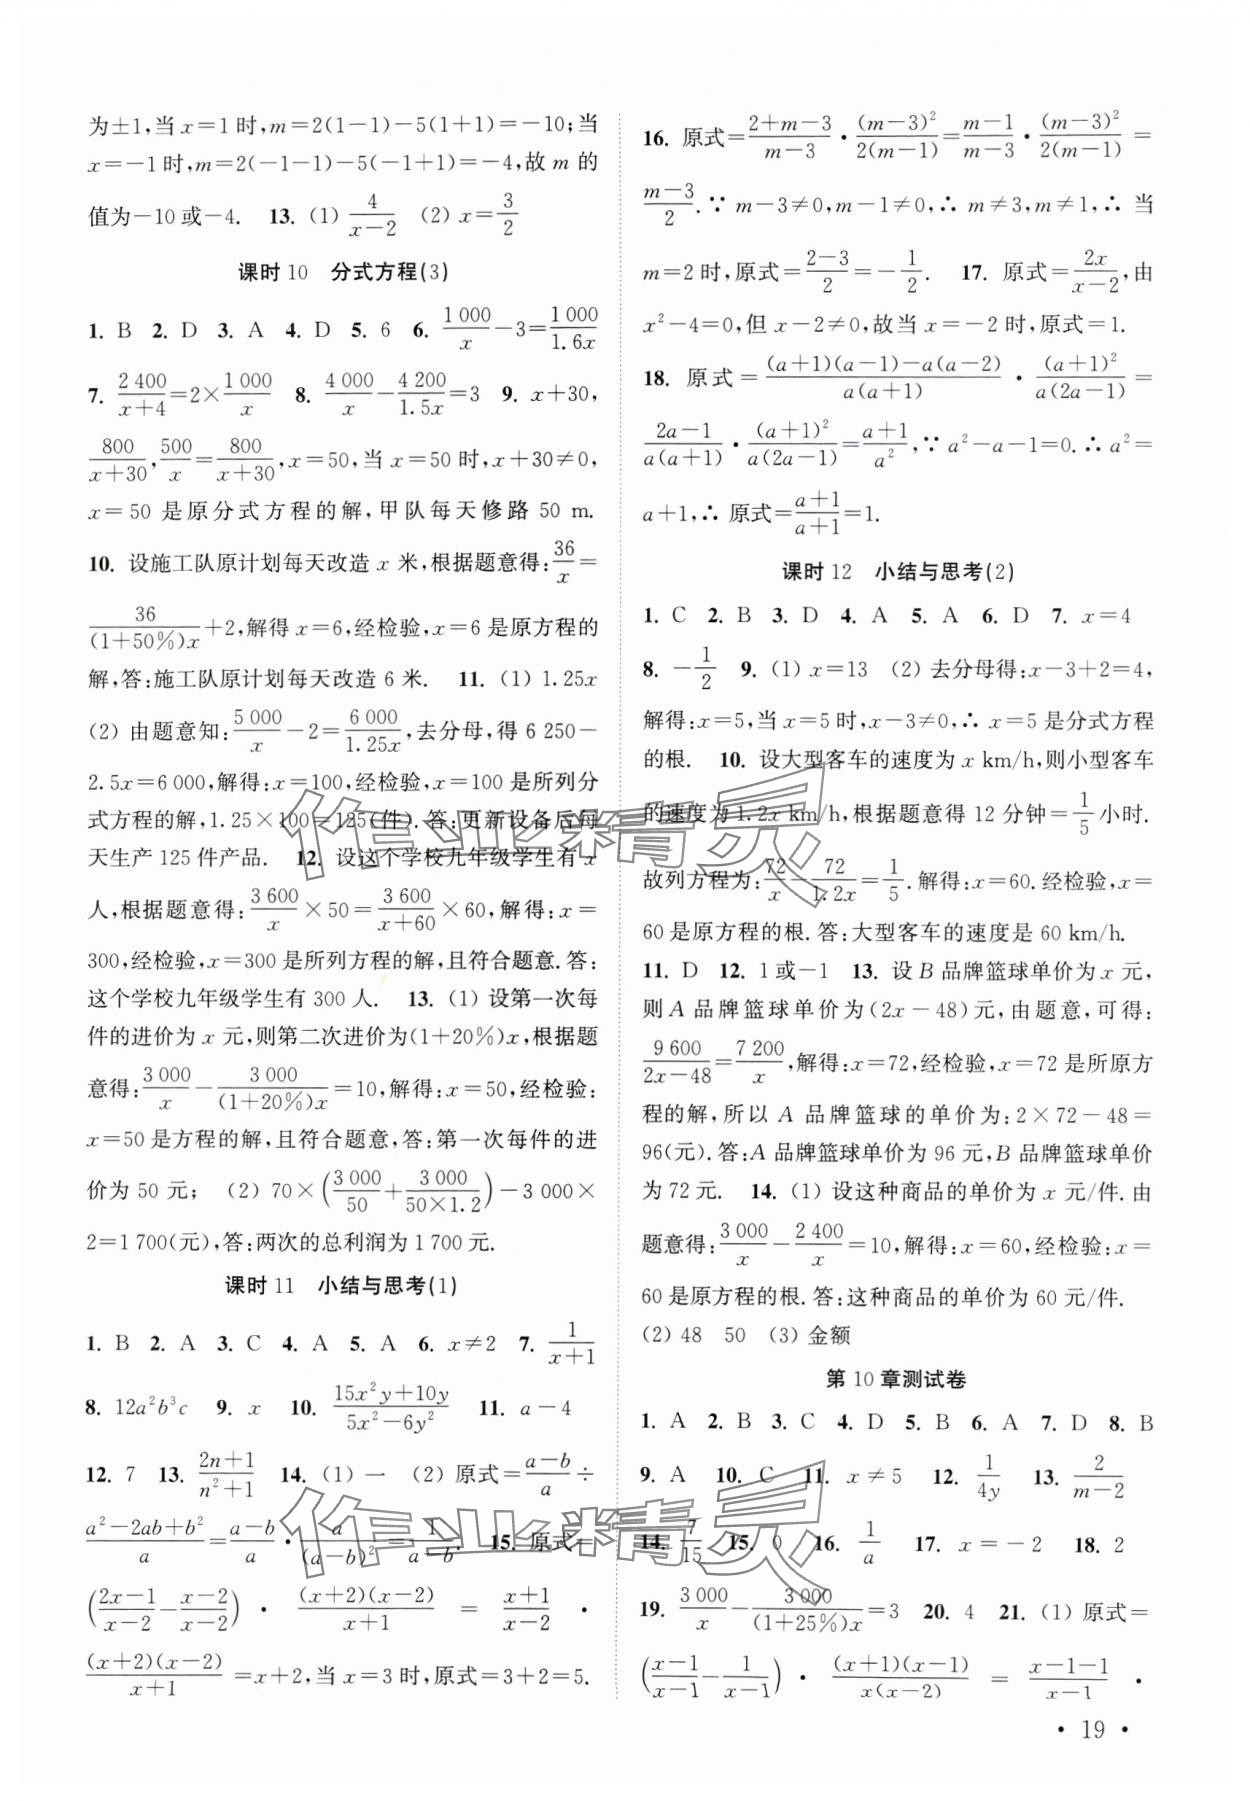 为±1,当 x=1 时,m=2(1-1)-5(1+1)=-10;当
x=-1 时,m=2(-1-1)-5(-1+1)=-4,故 m 的
值为-10 或-4. 13. (1) 4/(x-2) (2) x=3/2
课时 10 分式方程(3)
1. B 2. D 3. A 4. D 5. 6 6. 1 000/x-3=1 000/1.6x
7. 2 400/(x+4)=2×1 000/x 8. 4 000/x-4 200/1.5x=3 9. x+30,
800/(x+30),500/x=800/(x+30),x=50,当 x=50 时,x+30≠0,
x=50 是原分式方程的解,甲队每天修路 50 m.
10. 设施工队原计划每天改造 x 米,根据题意得:36/x=
36/((1+50%)x)+2,解得 x=6,经检验,x=6 是原方程的
解,答:施工队原计划每天改造 6 米. 11. (1) 1.25x
(2) 由题意知:5 000/x-2=6 000/1.25x,去分母,得 6 250-
2.5x=6 000,解得:x=100,经检验,x=100 是所列分
式方程的解,1.25×100=125(件).答:更新设备后每
天生产 125 件产品. 12. 设这个学校九年级学生有 x
人,根据题意得:3 600/x×50=3 600/(x+60)×60,解得:x=
300,经检验,x=300 是所列方程的解,且符合题意.答:
这个学校九年级学生有 300 人. 13. (1) 设第一次每
件的进价为 x 元,则第二次进价为(1+20%)x,根据题
意得:3 000/x-3 000/((1+20%)x)=10,解得:x=50,经检验:
x=50 是方程的解,且符合题意,答:第一次每件的进
价为 50 元; (2) 70×(3 000/50+3 000/(50×1.2))-3 000×
2=1 700(元),答:两次的总利润为 1 700 元.
课时 11 小结与思考(1)
1. B 2. A 3. C 4. A 5. A 6. x≠2 7. 1/(x+1)
8. 12a²b³c 9. x 10. (15x²y+10y)/(5x²-6y²) 11. a-4
12. 7 13. (2n+1)/(n²+1) 14. (1) 一 (2) 原式=(a-b)/a÷
(a²-2ab+b²)/a=(a-b)/a•a/(a-b)²=1/(a-b). 15. 原式=
((2x-1)/(x-2)-(x-2)/(x-2))•(x+2)(x-2)/(x+1)=(x+1)/(x-2)•
(x+2)(x-2)/(x+1)=x+2,当 x=3 时,原式=3+2=5.
16. 原式=(2+m-3)/(m-3)•(m-3)²/2(m-1)=(m-1)/(m-3)•(m-3)²/2(m-1)=
(m-3)/2.∵ m-3≠0,m-1≠0,∴ m≠3,m≠1,∴ 当
m=2 时,原式=(2-3)/2=-1/2. 17. 原式=2x/(x-2),由
x²-4=0,但 x-2≠0,故当 x=-2 时,原式=1.
18. 原式=((a+1)(a-1)-a(a-2))/a(a+1)•(a+1)²/a(2a-1)=
(2a-1)/a(a+1)•(a+1)²/a(2a-1)=(a+1)/a²,∵ a²-a-1=0.∴ a²=
a+1,∴ 原式=(a+1)/(a+1)=1.
课时 12 小结与思考(2)
1. C 2. B 3. D 4. A 5. A 6. D 7. x=4
8. -1/2 9. (1) x=13 (2) 去分母得:x-3+2=4,
解得:x=5,当 x=5 时,x-3≠0,∴ x=5 是分式方程
的根. 10. 设大型客车的速度为 x km/h,则小型客车
的速度为 1.2x km/h,根据题意得 12 分钟=1/5 小时.
故列方程为:72/x-72/1.2x=1/5.解得:x=60.经检验,x=
60 是原方程的根.答:大型客车的速度是 60 km/h.
11. D 12. 1 或-1 13. 设 B 品牌篮球单价为 x 元,
则 A 品牌篮球单价为(2x-48)元,由题意,可得:
9 600/(2x-48)=7 200/x,解得:x=72,经检验,x=72 是所原方
程的解,所以 A 品牌篮球的单价为:2×72-48=
96(元).答:A 品牌篮球单价为 96 元,B 品牌篮球单价
为 72 元. 14. (1) 设这种商品的单价为 x 元/件.由
题意得:3 000/x-2 400/x=10,解得:x=60,经检验:x=
60 是原方程的根.答:这种商品的单价为 60 元/件.
(2) 48 50 (3) 金额
第 10 章测试卷
1. A 2. B 3. C 4. D 5. B 6. A 7. D 8. B
9. A 10. C 11. x≠5 12. 1/4y 13. 2/(m-2)
14. 7/15 15. 0 16. 1/a 17. x=-2 18. 2
19. 3 000/x-3 000/((1+25%)x)=3 20. 4 21. (1) 原式=
((x-1)/(x-1)-1/(x-1))•(x+1)(x-1)/x(x-2)=(x-1-1)/(x-1)•
• 19 •
作业精灵
作业精灵